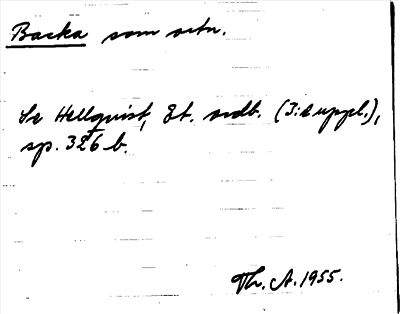 Backa som ortn.
Se Hellquist, Et. ordb. (3:e uppl.),
sp. 326 b.
Th. A. 1955.